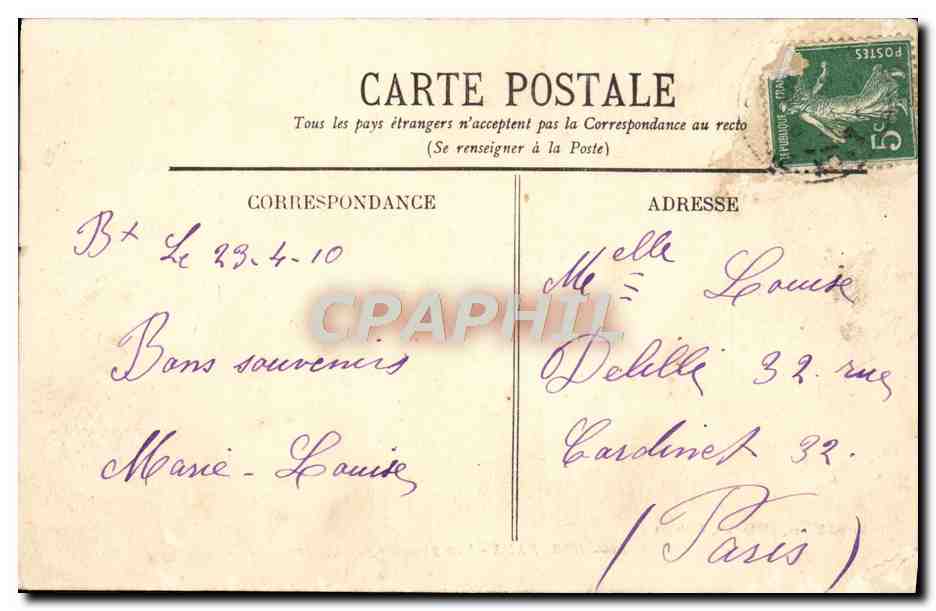 CARTE POSTALE
Tous les pays étrangers n'acceptent pas la Correspondance au recto
(Se renseigner à la Poste)
CORRESPONDANCE
Bx Le 23-4-10
Bons souvenirs
Marie-Louise
ADRESSE
Melle Louise
Delille 32. rue
Cardinet 32.
(Paris)
POSTES
REPUBLIQUE FRA
5c
CPAPHIL